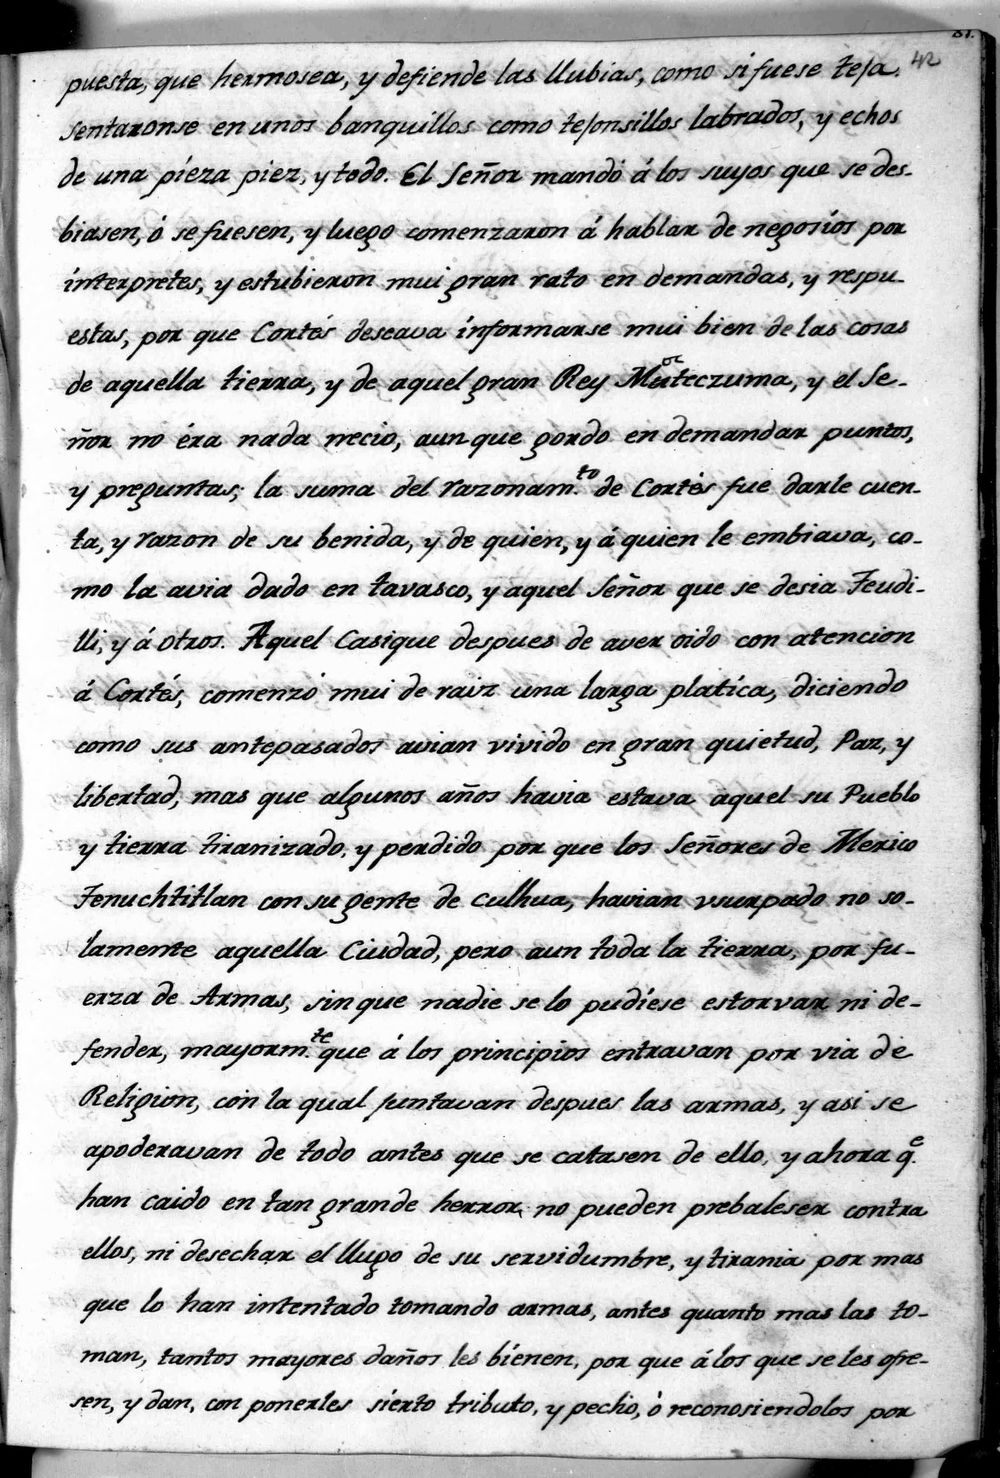 42
puesta, que hermosea, y defiende las llubias, como si fuese teja.
sentaronse en unos banquillos como tejonsillos labrados, y echos
de una pieza piez, y todo. El Señor mandó á los suyos que se des-
biasen, ó se fuesen, y luego comenzaron á hablar de negosios por
interpretes, y estubieron mui gran rato en demandas, y respu-
estas, por que Cortés deseava informarse mui bien de las cosas
de aquella tierra, y de aquel gran Rey Muteczuma, y el Se-
ñor no éra nada necio, aunque gordo en demandar puntos,
y preguntas; la suma del razonam.to de Cortés fue darle cuen-
ta, y razon de su benida, y de quien, y á quien le embiava, co-
mo la avia dado en tavasco, y aquel Señor que se desia Teudi-
lli, y á otros. Aquel Casique despues de aver oido con atencion
á Cortés, comenzó mui de raiz una larga platica, diciendo
como sus antepasados avian vivido en gran quietud, Paz, y
libertad, mas que algunos años havia estava aquel su Pueblo
y tierra tiranizado, y perdido por que los Señores de Mexico
Tenuchtitlan con su gente de culhua, havian vsurpado no so-
lamente aquella Ciudad, pero aun toda la tierra, por fu-
erza de Armas, sin que nadie se lo pudiese estorvar ni de-
fender, mayorm.te que á los principios entravan por via de
Religion, con la qual juntavan despues las armas, y asi se
apoderavan de todo antes que se catasen de ello, y ahora q.e
han caido en tan grande herror, no pueden prebaleser contra
ellos, ni desechar el llugo de su servidumbre, y tirania por mas
que lo han intentado tomando armas, antes quanto mas las to-
man, tantos mayores daños les bienen, por que á los que se les ofre-
sen, y dan, con ponerles sierto tributo, y pecho, ó reconosiendolos por